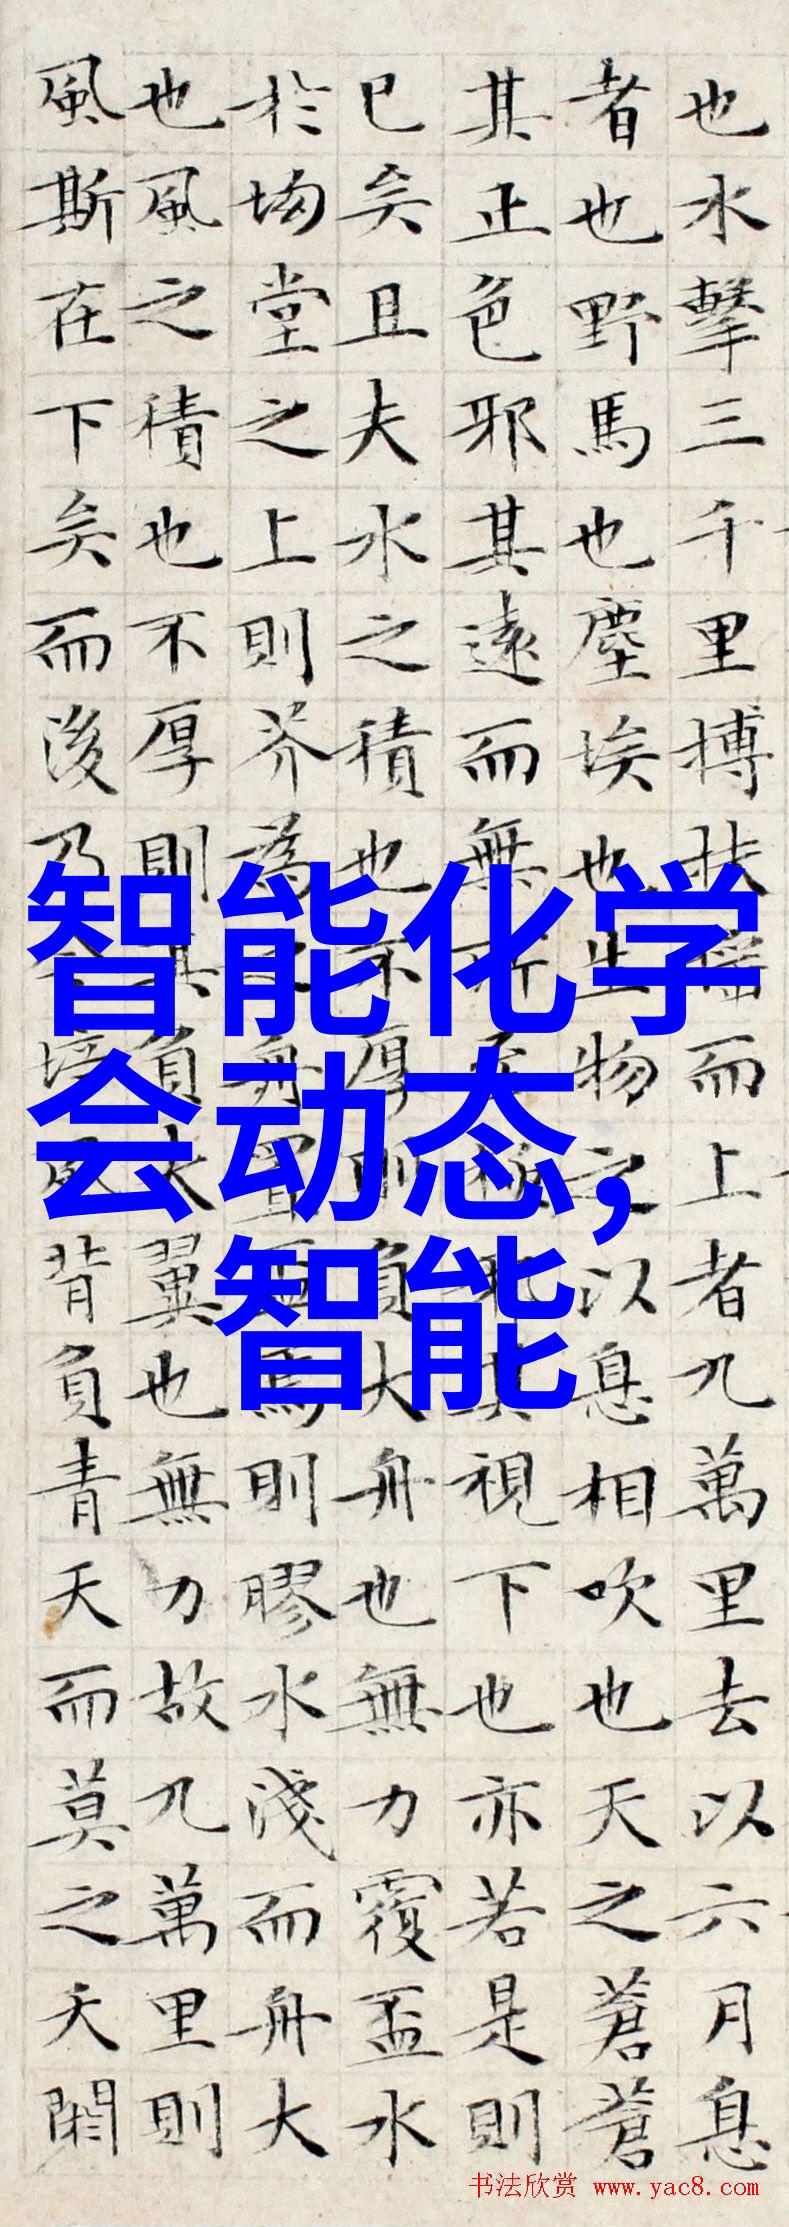 也水擊三千里搏扶搖而上者九萬里去以六月息
者也野馬也塵埃也生物之以息相吹也天之蒼蒼
其正色邪其遠而無所至極邪其視下也亦若是則
已矣且夫水之積也不厚則負大舟也無力覆盃水
於坳堂之上則芥為之舟置盃焉則膠水淺而舟大
也風之積也不厚則其負大翼也無力故九萬里則
風斯在下矣而後乃今培風背負青天而莫之夭閼
智能化学
会动态,
智能
书法欣赏 www.yac8.com